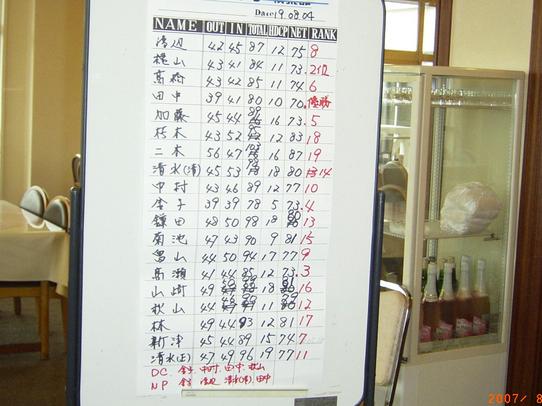 Date 19.08.04
NAME OUT IN TOTAL HDCP NET RANK
渡辺 42 45 87 12 75 8
横山 43 41 84 11 73 2位
高橋 43 42 85 11 74 6
田中 39 41 80 10 70 優勝
加藤 45 44 89 16 73 5
栃木 43 52 95 12 83 18
二木 56 47 103 16 87 19
清水(清) 45 53 18 80 14
中村 43 46 89 12 77 10
金子 39 39 78 5 73 4
鎌田 48 50 98 18 80 13
菊池 47 43 90 9 81 15
畠山 44 50 94 17 77 9
高瀬 41 44 85 12 73 3
山崎 49 18 81 16
秋山 44 11 12
林 49 44 93 12 81 17
新津 45 44 89 15 74 7
清水(正) 47 49 96 19 77 11
DC. 金子. 中村. 田中. 秋山
NP 金子 渡辺 清水(清). 田中
2007/ 8